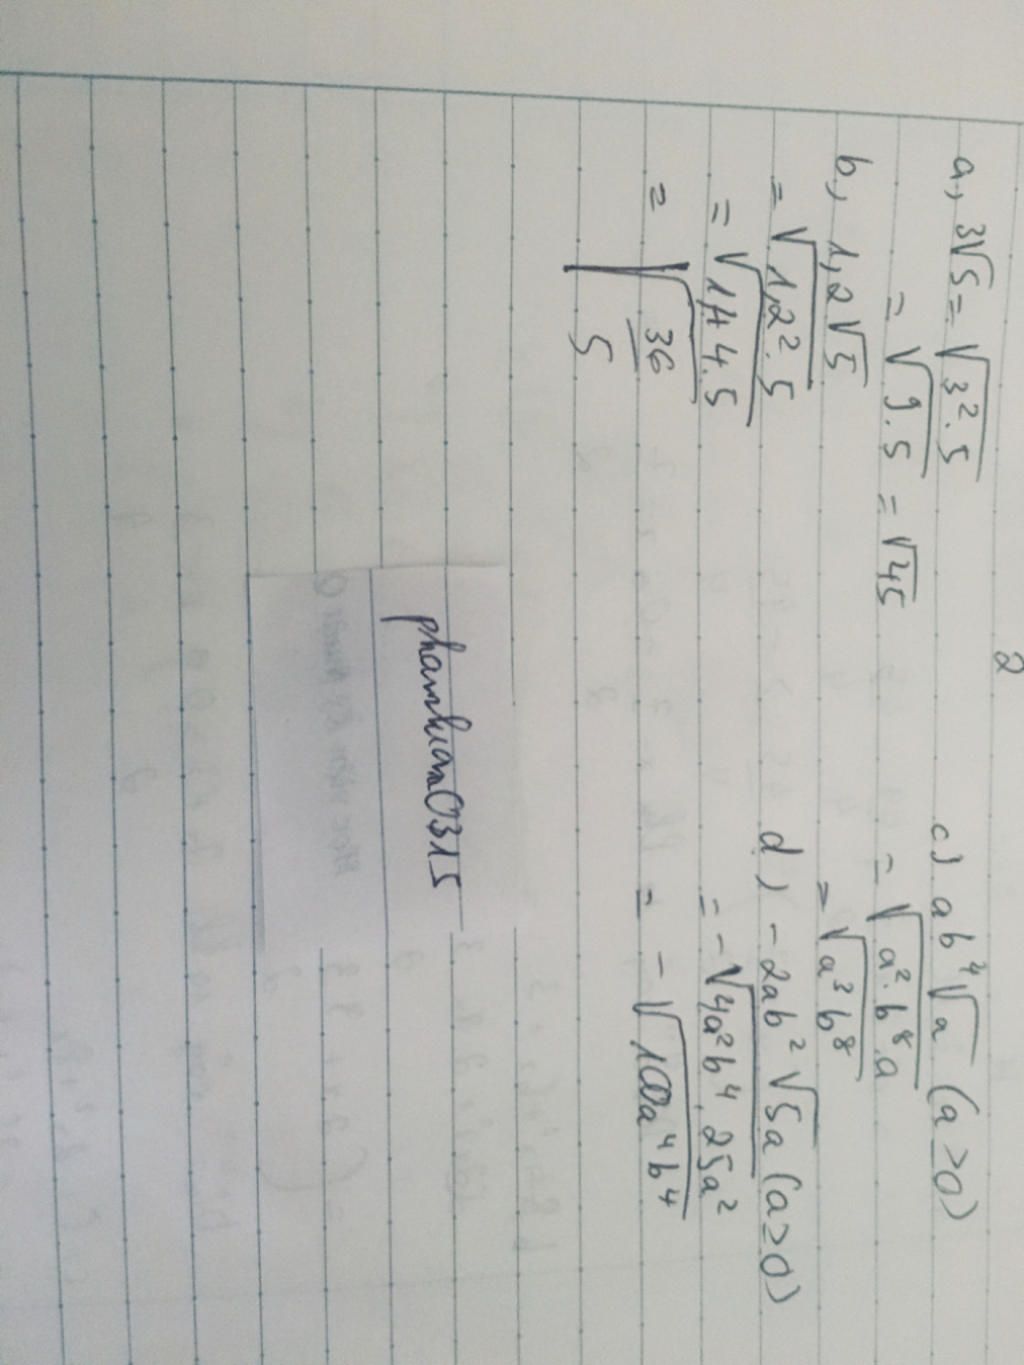 2
a, 3√5 = √3².5
= √9.5 = √45
b, 1,2√5
= √1,2².5
= √1,44.5
= √36/5
c) ab⁴√a (a≥0)
= √a².b⁸.a
= √a³b⁸
d) -2ab²√5a (a≥0)
= -√4a²b⁴.25a²
= -√100a⁴b⁴